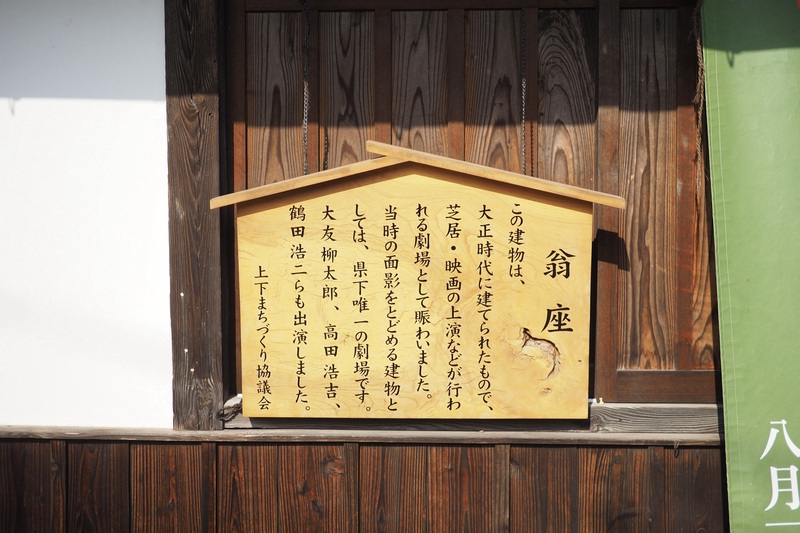 翁座
この建物は、
大正時代に建てられたもので、
芝居・映画の上演などが行わ
れる劇場として賑わいました。
当時の面影をとどめる建物と
しては、県下唯一の劇場です。
大友柳太郎、高田浩吉、
鶴田浩二らも出演しました。
上下まちづくり協議会
八月